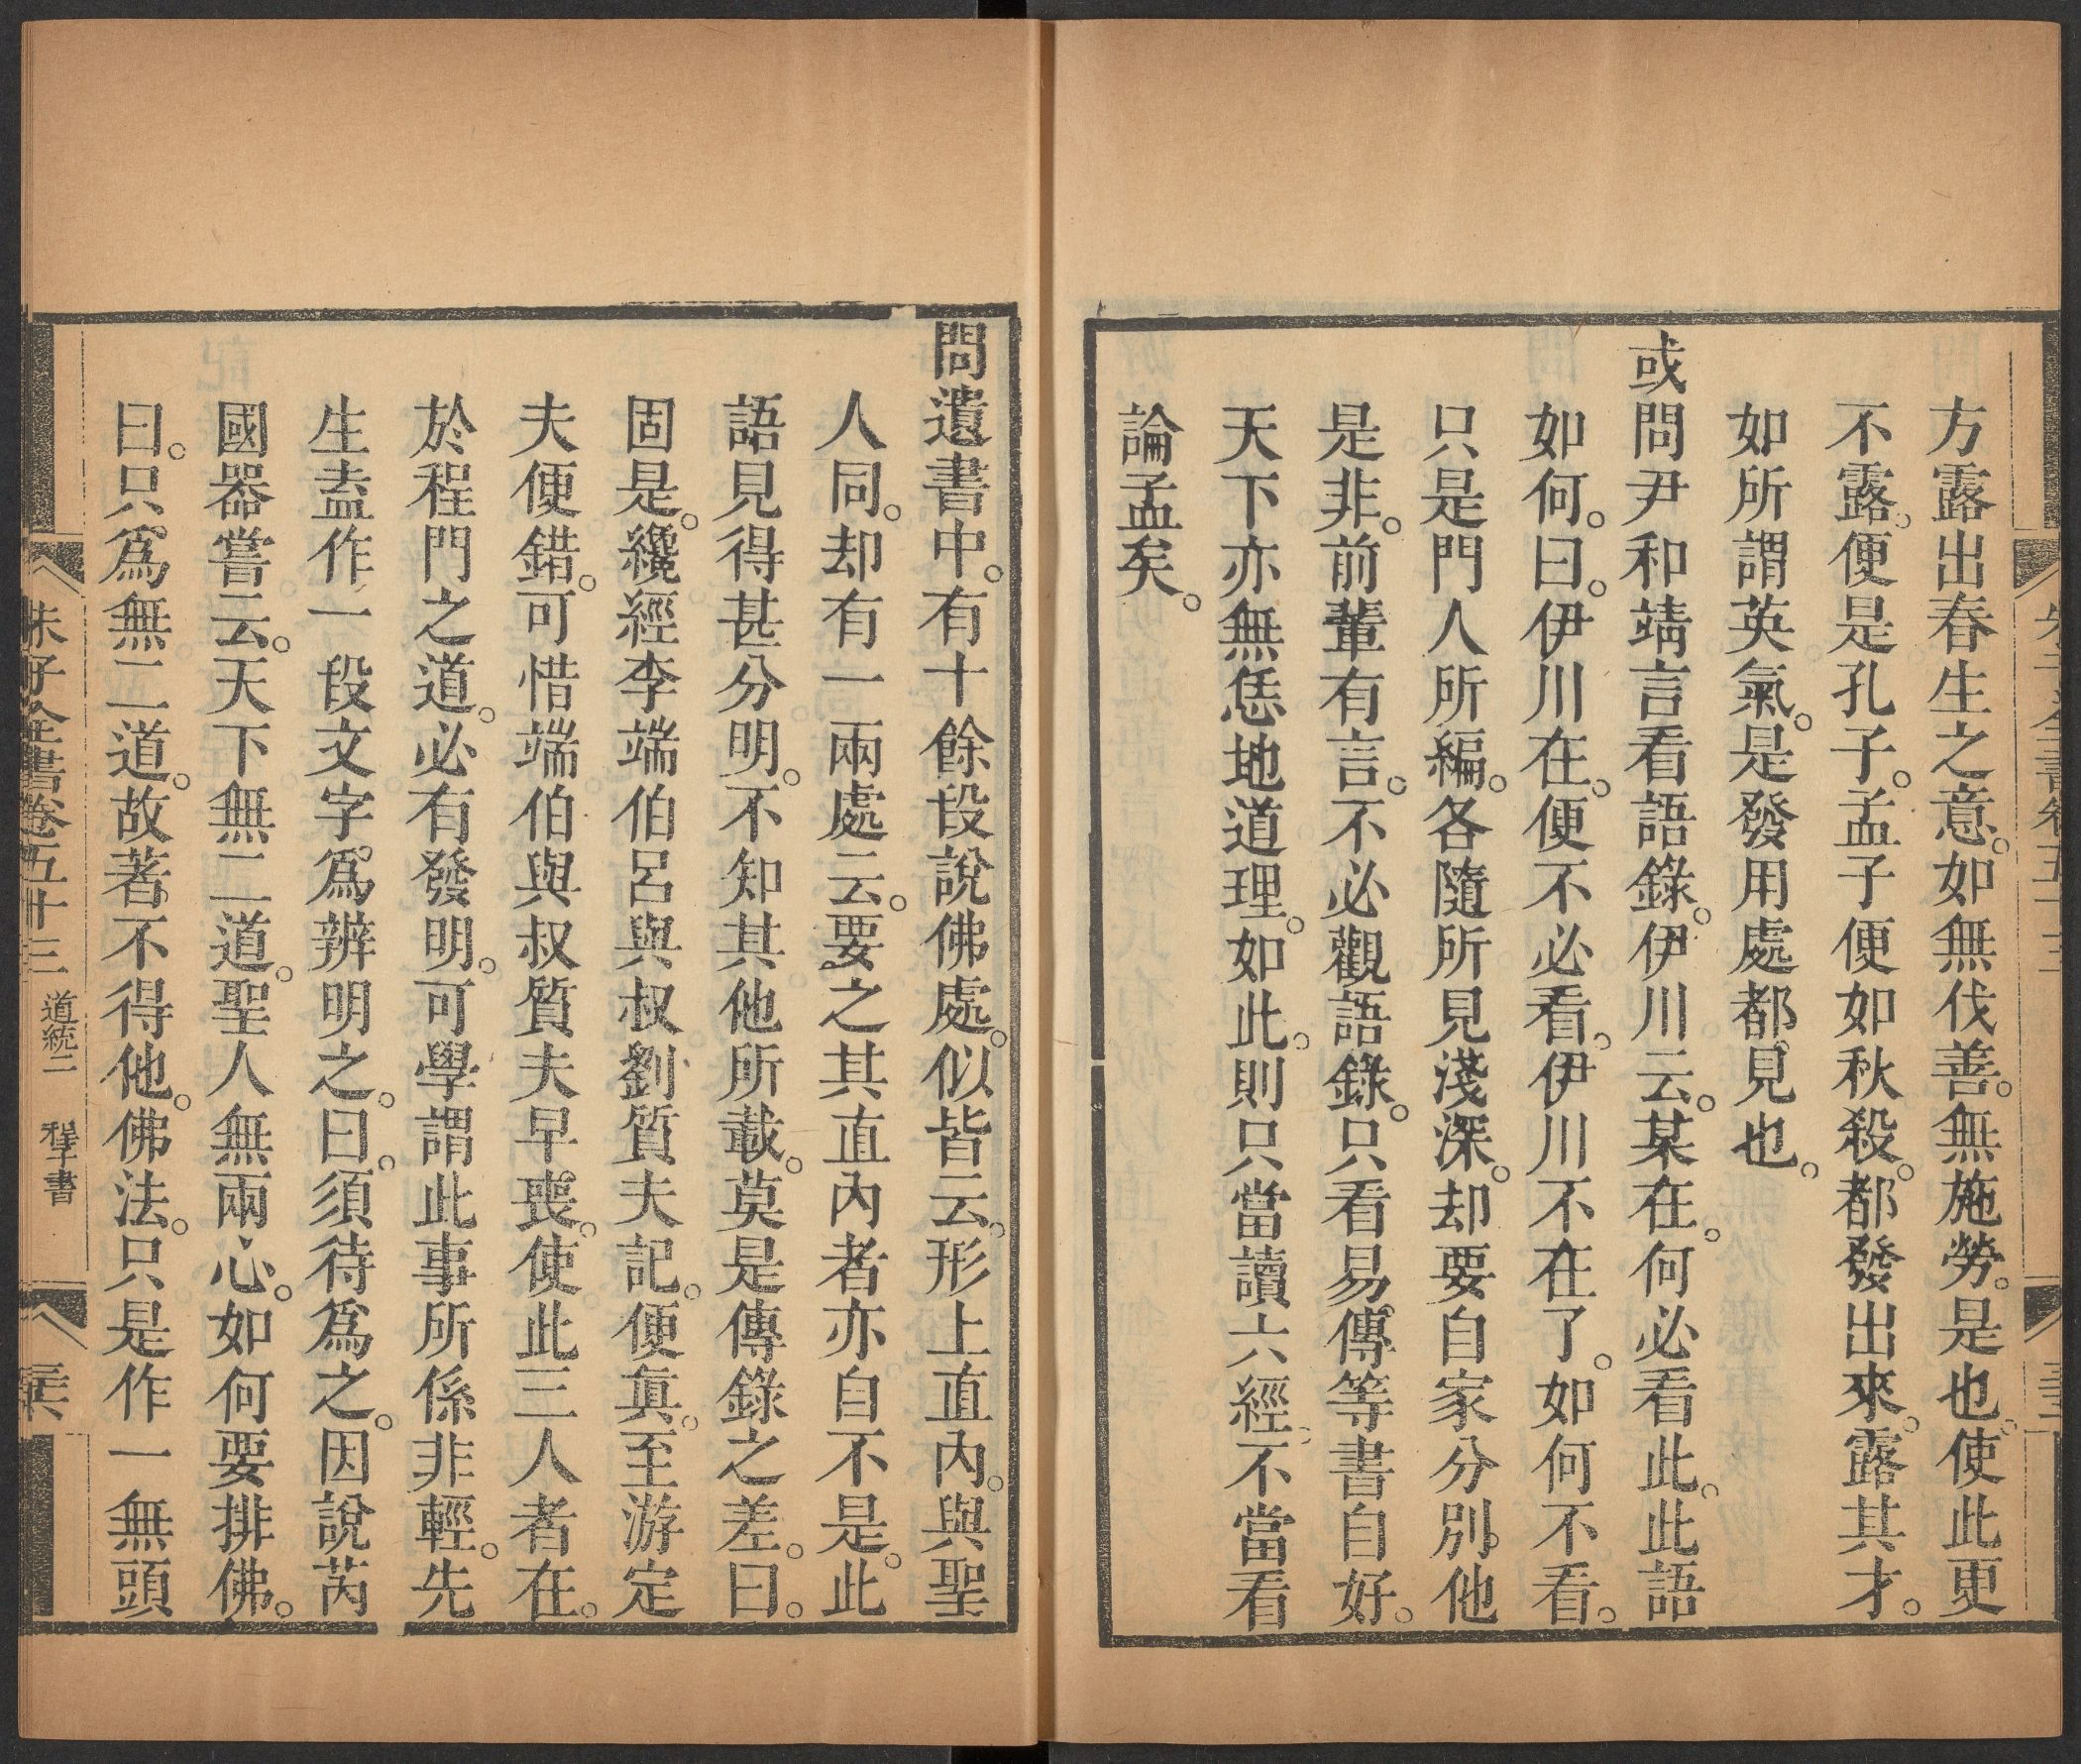 方露出春生之意。如無伐善。無施勞。是也。使此更
不露。便是孔子。孟子便如秋殺。都發出來。露其才。
如所謂英氣。是發用處都見也。
或問尹和靖言看語錄。伊川云。某在。何必看此。此語
如何。曰。伊川在。便不必看。伊川不在了。如何不看。
只是門人所編。各隨所見淺深。却要自家分別他
是非。前輩有言。不必觀語錄。只看易傳等書自好。
天下亦無恁地道理。如此。則只當讀六經。不當看
論孟矣。
問遺書中。有十餘段說佛處。似皆云。形上直內。與聖
人同。却有一兩處云。要之其直內者亦自不是。此
語見得甚分明。不知其他所載。莫是傳錄之差。曰。
固是。纔經李端伯呂與叔劉質夫記。便眞。至游定
夫便錯。可惜端伯與叔質夫早喪。使此三人者在。
於程門之道。必有發明。可學謂此事所係非輕。先
生盍作一段文字。爲辨明之。曰。須待爲之。因說芮
國器嘗云。天下無二道。聖人無兩心。如何要排佛。
曰。只爲無二道。故著不得他。佛法。只是作一無頭
朱子全書卷五十三 道統二 程子書